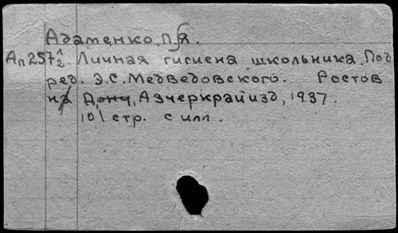 Адаменко, П.Я.
Ап257/2 Личная гигиена школьника. Под
ред. Э.С. Медведовского. Ростов
н/ Дону, Азчеркрайизд, 1937.
101 стр. с илл.